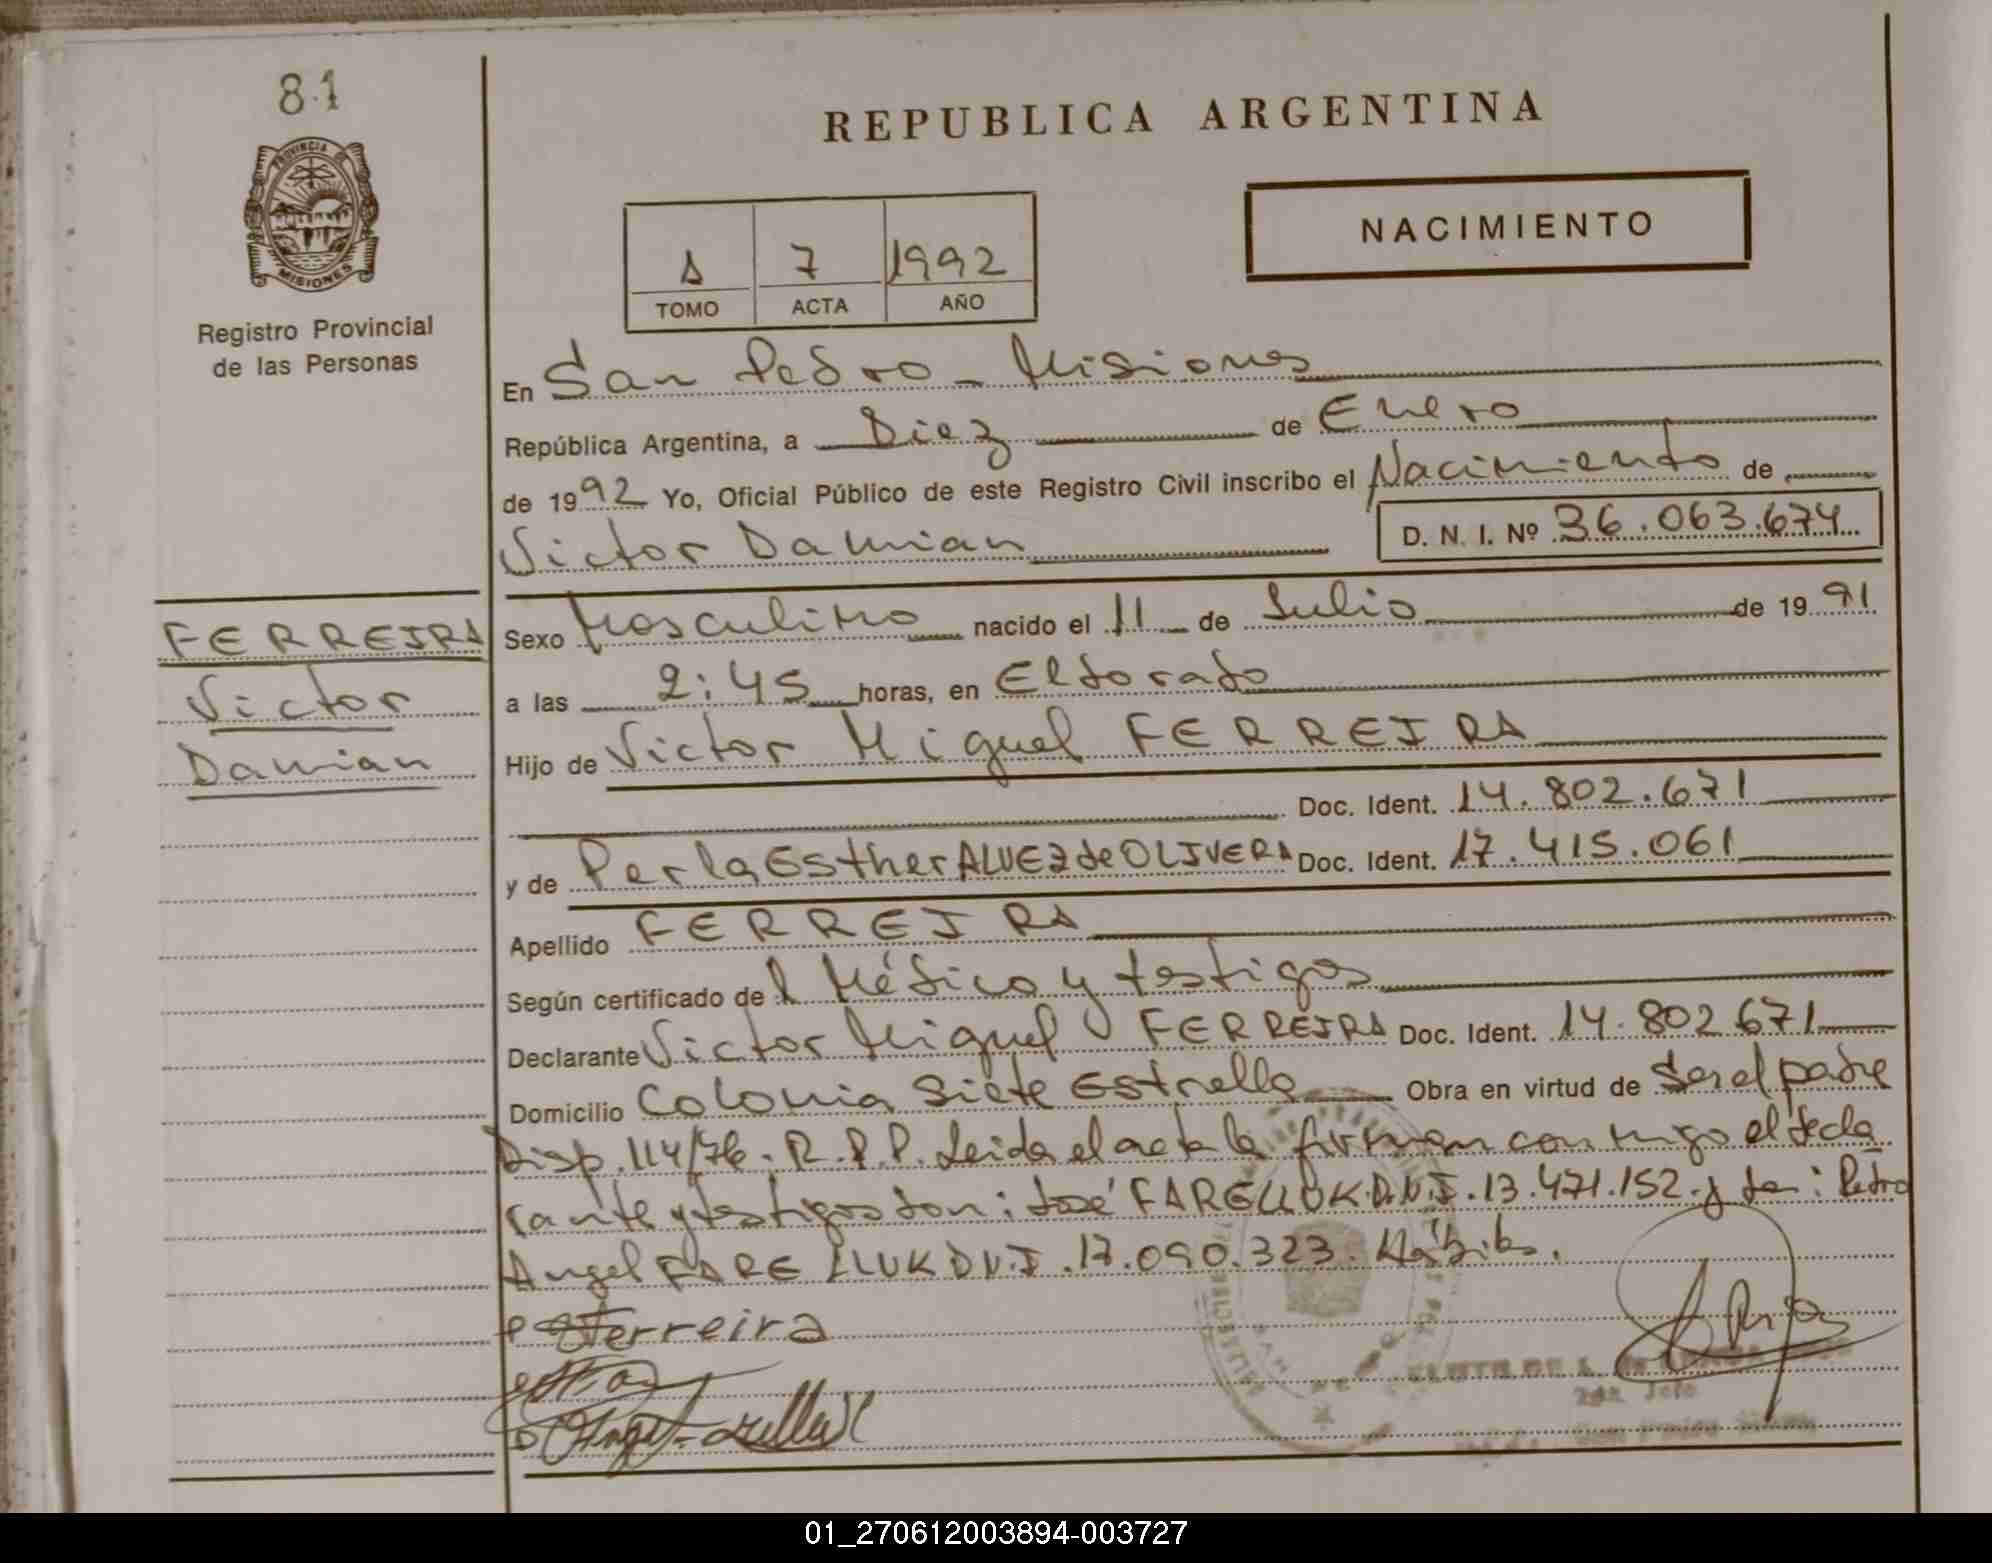 81
PROVINCIA DE
MISIONES
Registro Provincial
de las Personas
REPUBLICA ARGENTINA
NACIMIENTO
1 7 1992
TOMO ACTA AÑO
En San Pedro - Misiones
República Argentina, a Diez de Enero
de 1992 Yo, Oficial Público de este Registro Civil inscribo el Nacimiento de
Victor Damian D. N. I. Nº 36.063.674
FERREIRA
Victor
Damian
Sexo Masculino nacido el 11 de Julio de 1991
a las 2:45 horas, en Eldorado
Hijo de Victor Miguel FERREIRA
Doc. Ident. 14.802.671
y de Perla Esther ALVEZ de OLIVERA Doc. Ident. 17.415.061
Apellido FERREIRA
Según certificado del Médico y testigos
Declarante Victor Miguel FERREIRA Doc. Ident. 14.802.671
Domicilio Colonia Siete Estrella Obra en virtud de Ser el padre
Disp. 114/76. R.P.P. Leida el acta la firman conmigo el decla
rante y testigos don: José FARELLUK D.N.I. 13.471.152 y don: Pedro
Angel FARELLUK D.N.I. 17.090.323.
Ferreira
01_270612003894-003727